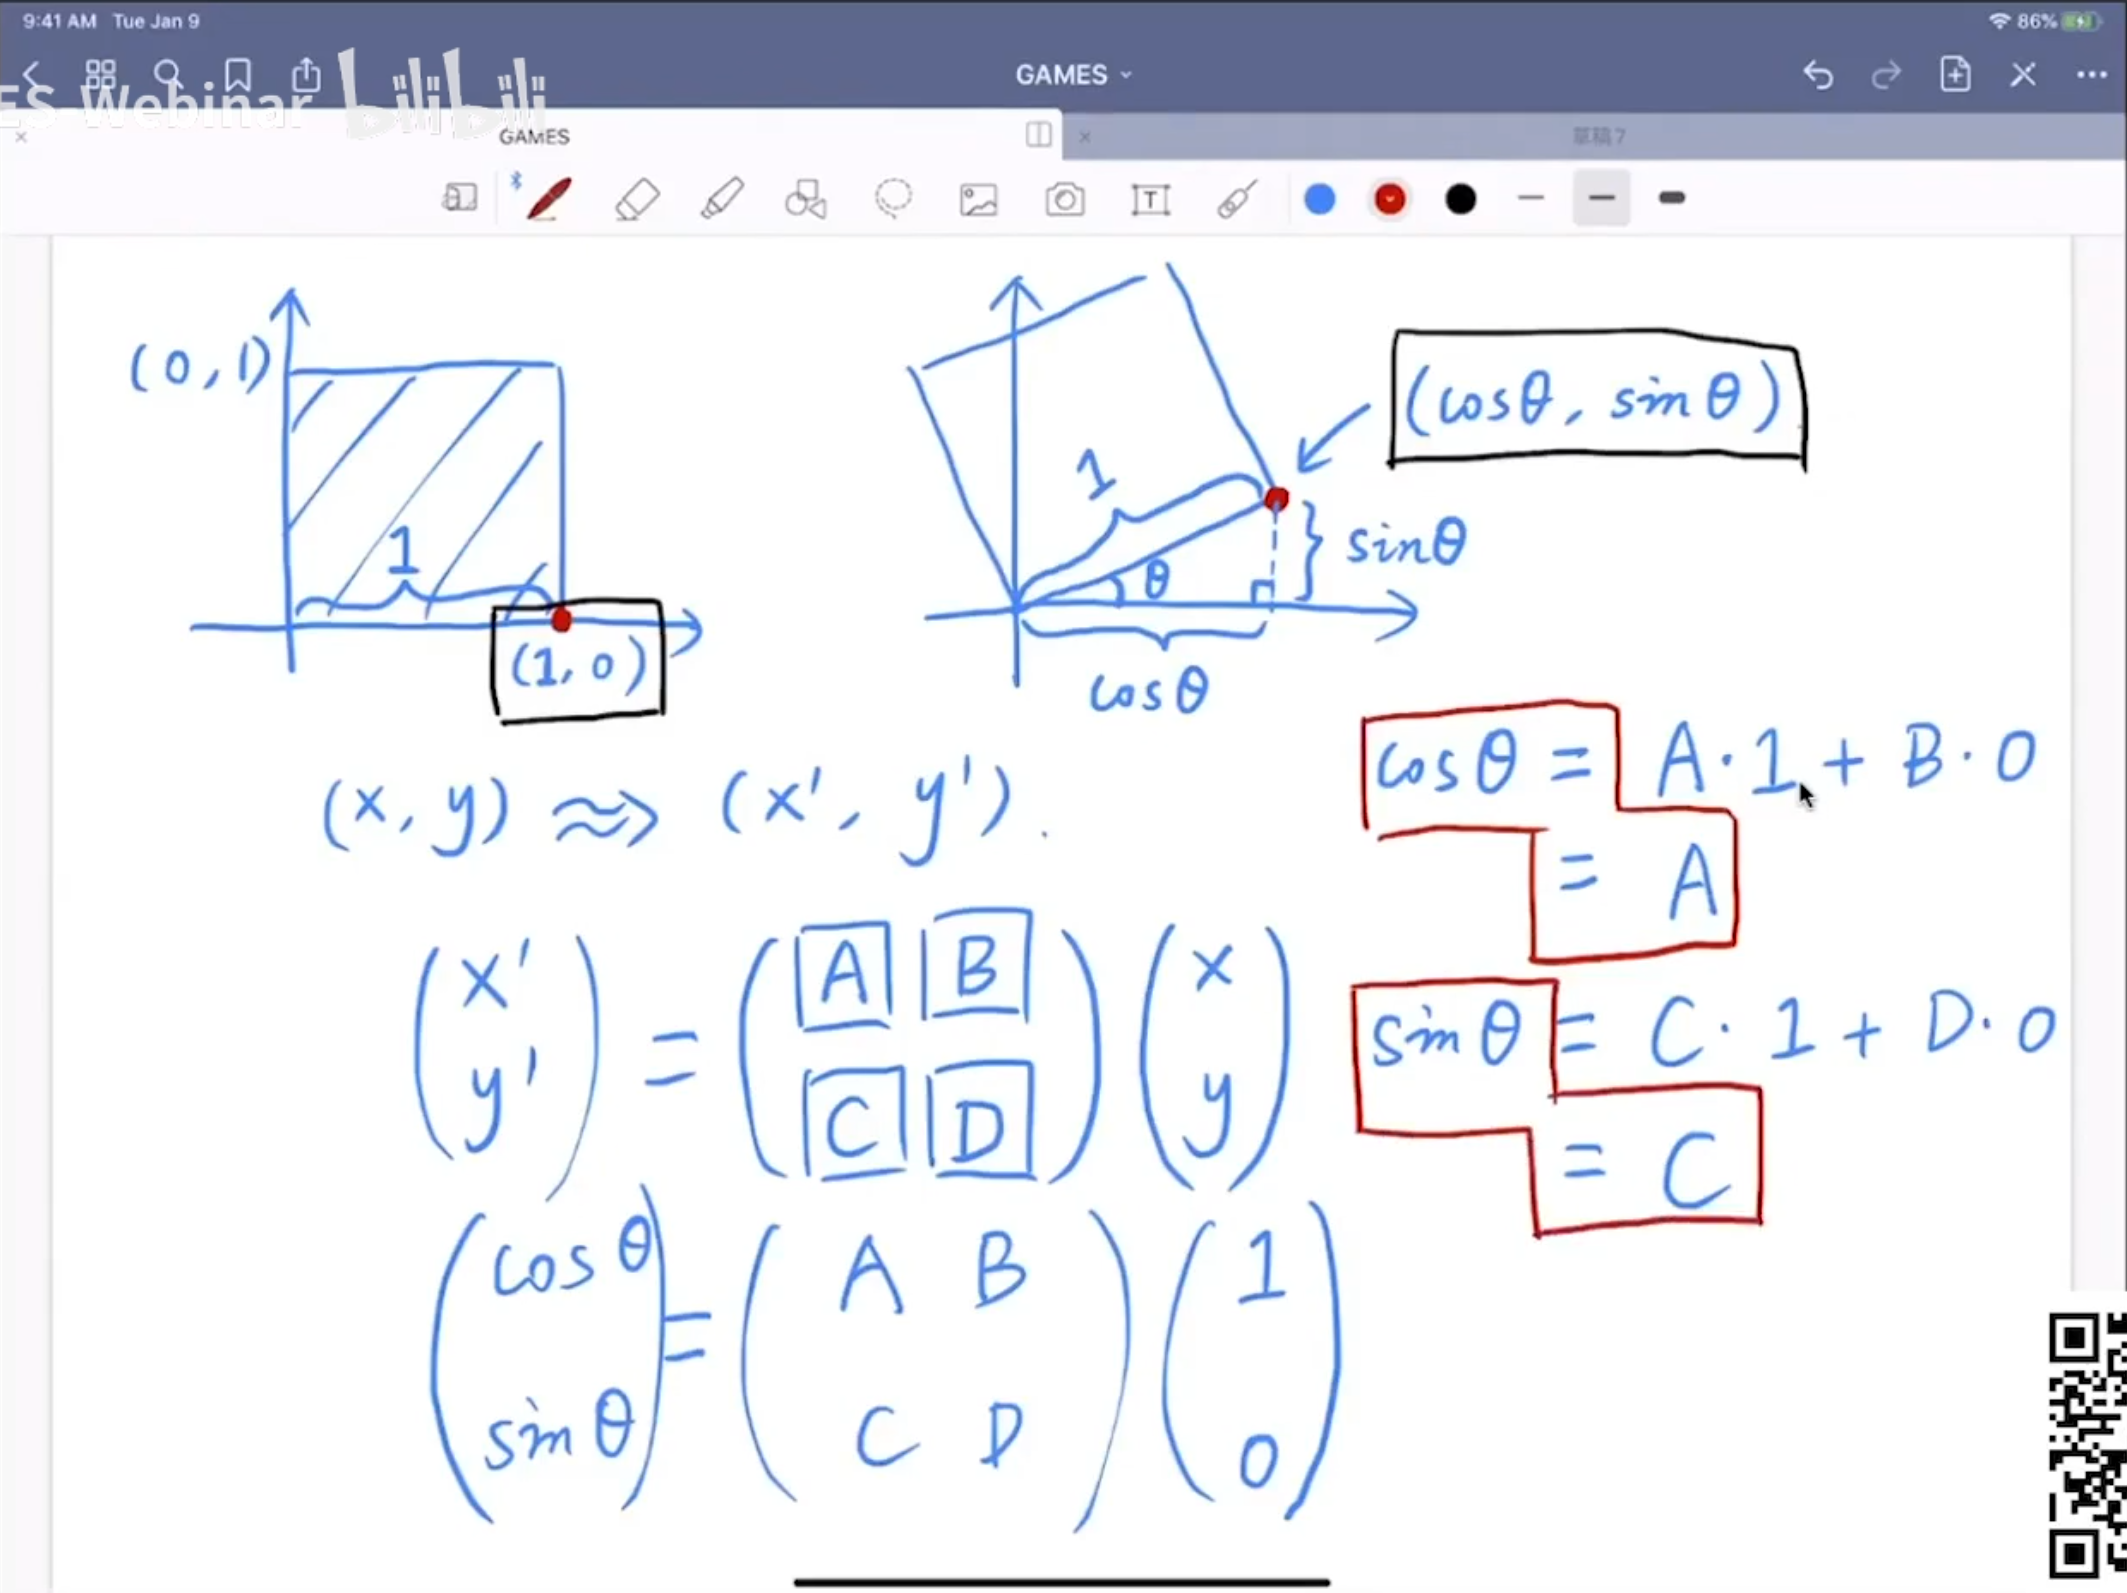 9:41 AM Tue Jan 9
86%
ES-Webinar bilibili
GAMES
GAMES
草稿7
T
(0,1)
1
(1,0)
1
θ
(cosθ, sinθ)
sinθ
cosθ
(x,y) ≈> (x', y').
cosθ = A·1 + B·0
= A
(x' y') = (A B C D) (x y)
sinθ = C·1 + D·0
= C
(cosθ sinθ) = (A B C D) (1 0)